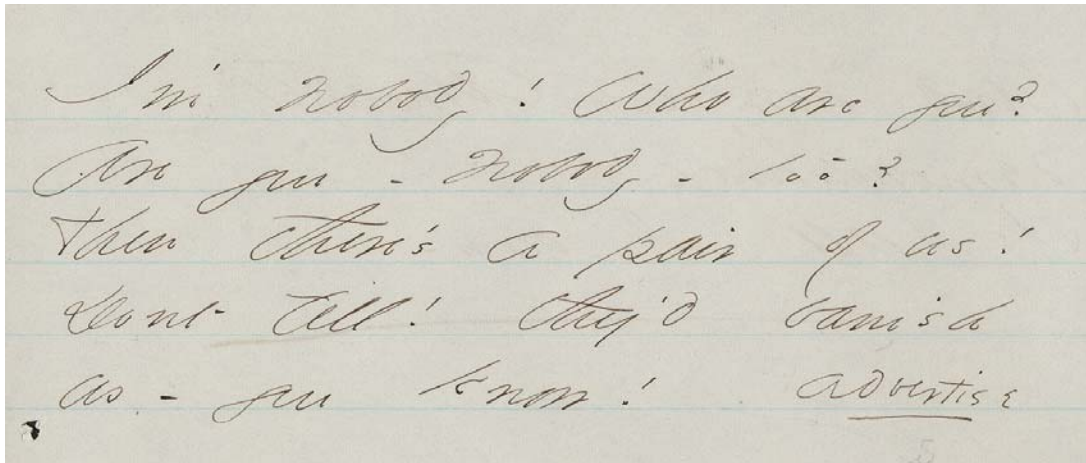 I'm Nobody! Who are you?
Are you - Nobody - too?
Then there's a pair of us!
Dont tell! they'd banish
us - you know! advertise